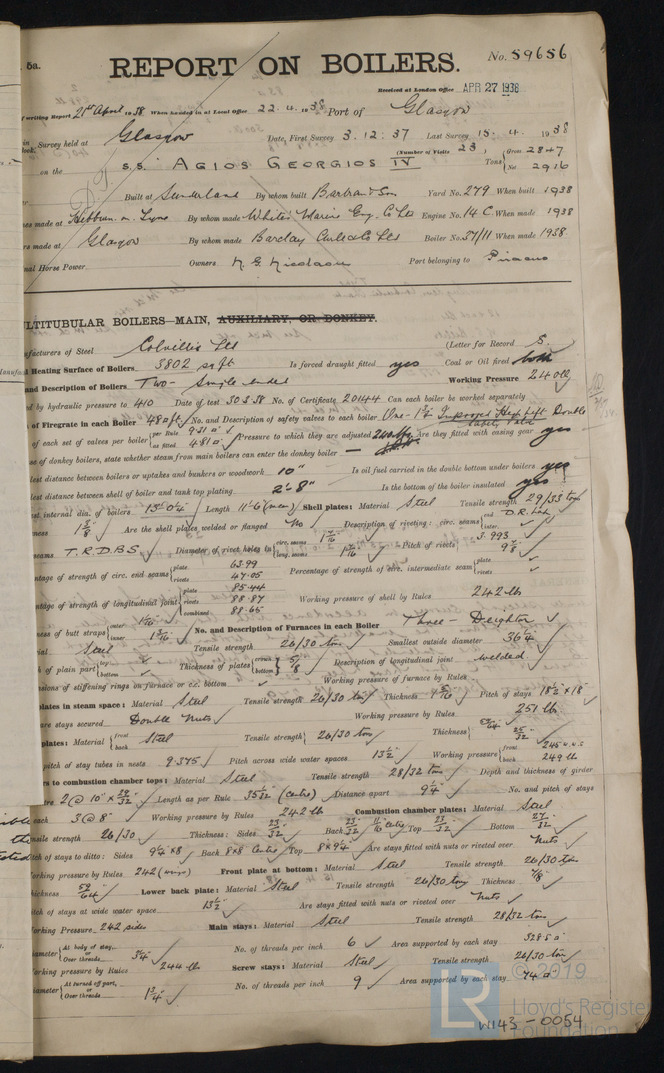 5a.
REPORT ON BOILERS.
No. 59656
Received at London Office APR 27 1938
writing Report 21st April 1938 When handed in at Local Office 22.4.1938 Port of Glasgow
Survey held at Glasgow Date, First Survey 3.12.37 Last Survey 15.4.1938
on the S.S. AGIOS GEORGIOS IV (Number of Visits 23) Tons Gross 2847 Net 2916
Built at Sunderland By whom built Bartram & Son Yard No. 279 When built 1938
made at Hebburn on Tyne By whom made White's Marine Eng. Co Ltd Engine No. 14 C When made 1938
made at Glasgow By whom made Barclay Curle & Co Ltd Boiler No. 37/11 When made 1938.
Horse Power Owners N. G. Nicolaou Port belonging to Piraeus
MULTITUBULAR BOILERS—MAIN, AUXILIARY, OR DONKEY.
Manufacturers of Steel Colvilles Ltd (Letter for Record S.
Heating Surface of Boilers 3802 sq ft Is forced draught fitted yes Coal or Oil fired both
and Description of Boilers Two - Single ended Working Pressure 240 lb
by hydraulic pressure to 410 Date of test 30.3.38 No. of Certificate 20144 Can each boiler be worked separately
of Firegrate in each Boiler 48 □ft No. and Description of safety valves to each boiler One - 1¾ Improved High Lift Double Safety Valve
of each set of valves per boiler per Rule 9.31 □" as fitted 4.81 □" Pressure to which they are adjusted 240 lb Are they fitted with easing gear yes
of donkey boilers, state whether steam from main boilers can enter the donkey boiler —
distance between boilers or uptakes and bunkers or woodwork 10" Is oil fuel carried in the double bottom under boilers yes
distance between shell of boiler and tank top plating 2'-8" Is the bottom of the boiler insulated yes
internal dia. of boilers 13'-0¼" Length 11'-6" (mean) Shell plates: Material Steel Tensile strength 29/33 tons
1⅜ Are the shell plates welded or flanged No Description of riveting: circ. seams end D.R. Lap inter. ✓
seams T.R.D.B.S. Diameter of rivet holes in circ. seams 1 7/16 long. seams 1 7/16 Pitch of rivets 3.993 9⅞
percentage of strength of circ. end seams plate 63.99 rivets 47.05 Percentage of strength of circ. intermediate seam plate ✓ rivets ✓
percentage of strength of longitudinal joint plate 85.44 rivets 88.87 combined 88.65 Working pressure of shell by Rules 242 lb
of butt straps outer 1 1/16 inner 1 3/16 No. and Description of Furnaces in each Boiler Three - Deighton
Steel Tensile strength 26/30 tons Smallest outside diameter 36¼
of plain part top ✓ bottom ✓ Thickness of plates crown bottom 5/8 Description of longitudinal joint welded
of stiffening rings on furnace or c.c. bottom ✓ Working pressure of furnace by Rules
plates in steam space: Material Steel Tensile strength 26/30 tons Thickness 1 5/16 Pitch of stays 18½ x 18
are stays secured Double Nuts Working pressure by Rules 251 lb
plates: Material front back Steel Tensile strength 26/30 tons Thickness 53/64 25/32
pitch of stay tubes in nests 9.375 Pitch across wide water spaces 13½ Working pressure front 245 back 249 lb
to combustion chamber tops: Material Steel Tensile strength 28/32 tons Depth and thickness of girder
2 @ 10" x 28/32 Length as per Rule 35 5/32 (Centre) Distance apart 9¼ No. and pitch of stays
each 3 @ 8" Working pressure by Rules 242 lb Combustion chamber plates: Material Steel
Tensile strength 26/30 Thickness: Sides 23/32 Back 23/32 11/16 centre Top 23/32 Bottom 27/32
Pitch of stays to ditto: Sides 9¼ x 8 Back 8x8 Centre Top 8x9¼ Are stays fitted with nuts or riveted over Nuts
Working pressure by Rules 242 (wings) Front plate at bottom: Material Steel Tensile strength 26/30 tons
Thickness 52/64 Lower back plate: Material Steel Tensile strength 26/30 tons Thickness 7/8
Pitch of stays at wide water space 13½ Are stays fitted with nuts or riveted over Nuts
Working Pressure 242 sides Main stays: Material Steel Tensile strength 28/32 tons
Diameter At body of stay, or Over threads 3¼ No. of threads per inch 6 Area supported by each stay 328.5 □"
Working pressure by Rules 244 lb Screw stays: Material Steel Tensile strength 26/30 tons
Diameter At turned off part, or Over threads 1¾ No. of threads per inch 9 Area supported by each stay 74 □"
© 2019
LR Lloyd's Register Foundation
W143-0054